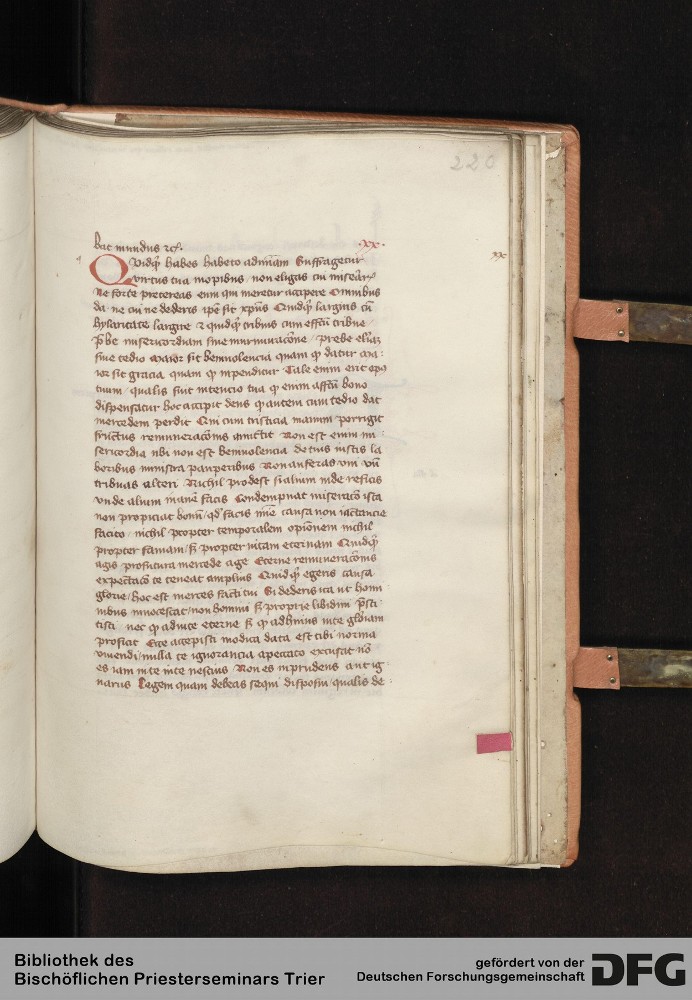 220
dat mundus rc̄. ·xx·
xx
Quidq̄ habes habeto ad miam̄ Suffragetur
virtus tua inopibus / non eligas cui misear̄
ne forte pretereas eum qui meretur accipere Omnibus
da· ne cui ne dederis ip̄e sit xp̄us Quidq̄ largiris cū
hylaritate largire ⁊ quidq̄ tribuis cum effc̄u tribue /
p̄be misericordiam sine murmurac̄one / prebe eliāȝ
sine tedio maior sit beniuolencia quam q̄ datur ma-
ior sit gracia quam q̄ inpenditur Tale enim erit opꝰ
tuum / qualis fuit intencio tua q̄ enim affc̄u bono
dispensatur hoc accipit deus q̄ autem cum tedio dat
mercedem perdit Qui cum tristicia manum porrigit
fructus remunerac̄onis amittit Non est enim mi-
sericordia ubi non est beniuolencia de tuis iustis la-
boribus ministra pauperibus Non auferas vni vn̄
tribuas alteri Nichil prodest si alium inde reficis
vnde alium inanē facis Condempnat miserac̄o ista
non propiciat bonū / qd̄ facis mīe causa non iactancie
facito / nichil propter temporalem opionem nichil
propter famam / s̄ propter vitam eternam Quidq̄
agis pro futura mercede age Eterne remunerac̄onis
expectac̄o te teneat amplius Quidq̄ egeris causa
glorie / hoc est merces facti tui Si dederis ita ut homi-
nibus innotescat / non homini s̄ proprie libidini p̄sti-
tisti / nec q̄ ad vite eterne s̄ q̄ ad huius vite glōiam
proficit Ecce accepisti modica data est tibi norma
viuendi / nulla te ignorancia a peccato excusat nō
es iam vite nescius Non es inprudens aut ig-
narus Legem quam debeas sequi disposui / qualis de-
Bibliothek des
Bischöflichen Priesterseminars Trier
gefördert von der
Deutschen Forschungsgemeinschaft
DFG